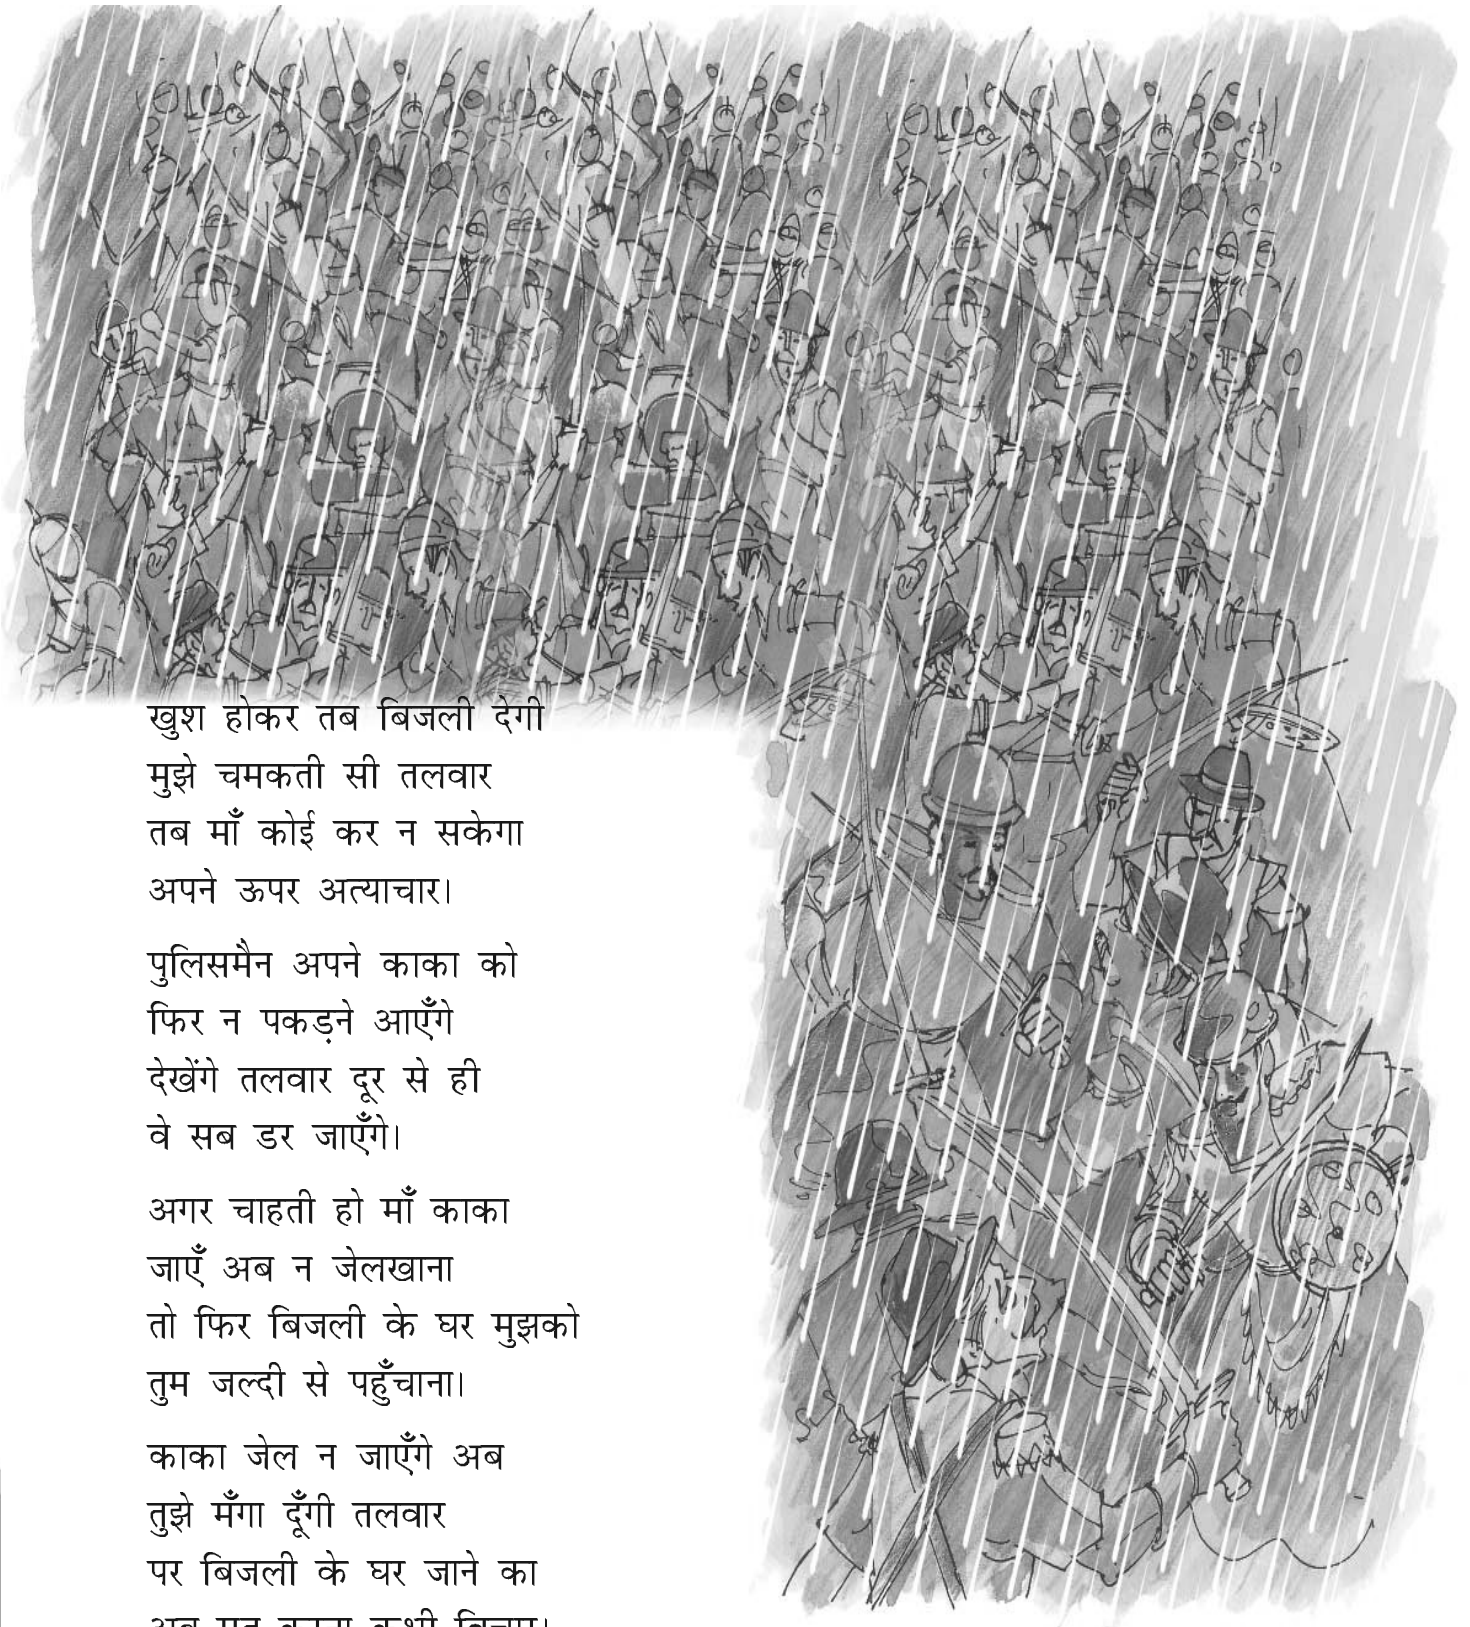 खुश होकर तब बिजली देगी
मुझे चमकती सी तलवार
तब माँ कोई कर न सकेगा
अपने ऊपर अत्याचार।
पुलिसमैन अपने काका को
फिर न पकड़ने आएँगे
देखेंगे तलवार दूर से ही
वे सब डर जाएँगे।
अगर चाहती हो माँ काका
जाएँ अब न जेलखाना
तो फिर बिजली के घर मुझको
तुम जल्दी से पहुँचाना।
काका जेल न जाएँगे अब
तुझे मँगा दूँगी तलवार
पर बिजली के घर जाने का
अब मत करना कभी विचार।